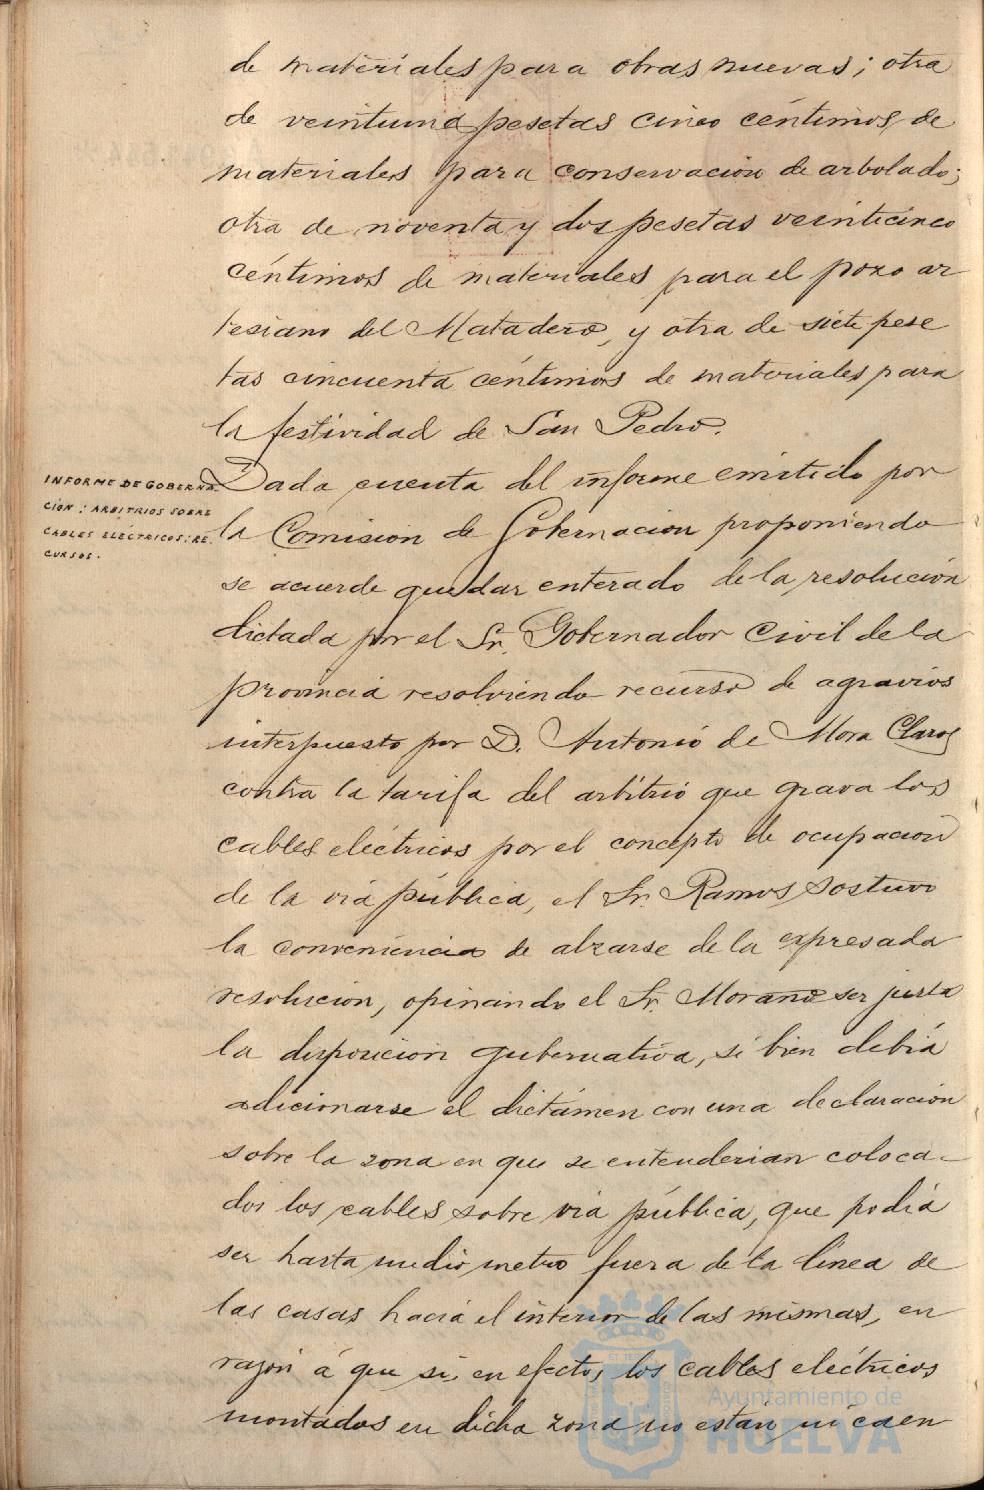 de materiales para obras nuevas; otra
de veintuna pesetas cinco céntimos de
materiales para conservación de arbolado;
otra de noventa y dos pesetas veinticinco
céntimos de materiales para el pozo ar
tesiano del Matadero, y otra de siete pese
tas cincuenta céntimos de materiales para
la festividad de San Pedro.
INFORME DE GOBERNA
CION: ARBITRIOS SOBRE
CABLES ELÉCTRICOS: RE
CURSOS.
Dada cuenta del informe emitido por
la Comisión de Gobernación proponiendo
se acuerde quedar enterado de la resolución
dictada por el Sr. Gobernador Civil de la
provincia resolviendo recurso de agravios
interpuesto por D. Antonio de Mora Claros
contra la tarifa del arbitrio que grava los
cables eléctricos por el concepto de ocupación
de la vía pública, el Sr. Ramos sostuvo
la conveniencia de alzarse de la expresada
resolución, opinando el Sr. Morano ser justa
la disposición gubernativa, si bien debía
adicionarse el dictámen con una declaración
sobre la zona en que se entenderían coloca-
dos los cables sobre vía pública, que podía
ser hasta medio metro fuera de la línea de
las casas hacia el interior de las mismas, en
razón á que si, en efecto, los cables eléctricos
montados en dicha zona no están ni caen
Ayuntamiento de
HUELVA